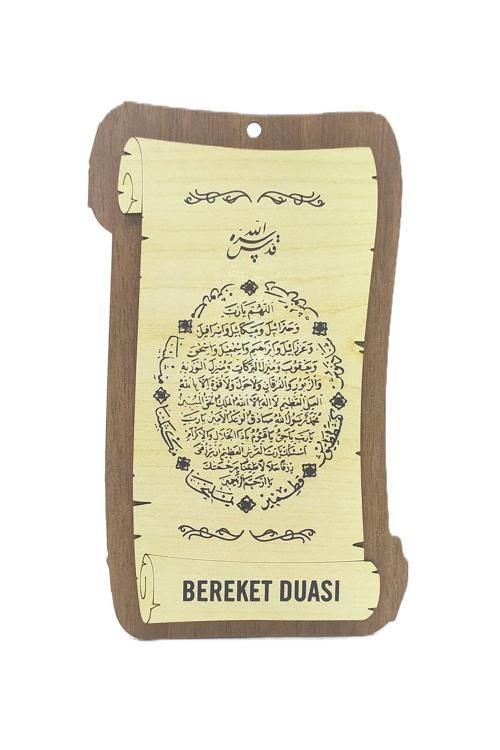 قدس الله سره
اللهم يا رب
وجبرائيل وميكائيل واسرافيل
وعزرائيل وابراهيم واسمعيل واسحق
ويعقوب ومنزل البركات ومنزل التورية
والزبور والفرقان ولا حول ولا قوة الا بالله
العلي العظيم لا اله الا الله الملك الحق المبين
محمد رسول الله صادق الوعد الامين يا رب
يا رب يا حي يا قيوم يا ذا الجلال والاكرام
اسئلك يا رب العرش العظيم ان ترزقني
رزقا حلالا طيبا برحمتك
يا ارحم الراحمين
BEREKET DUASI